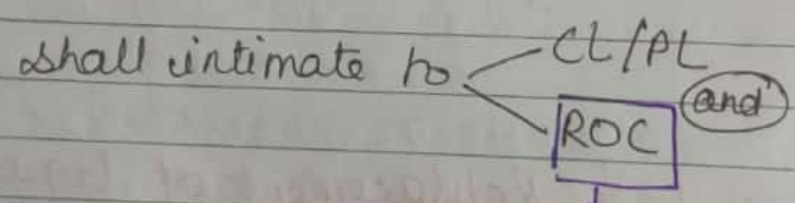 shall intimate to CL/PL
and
ROC